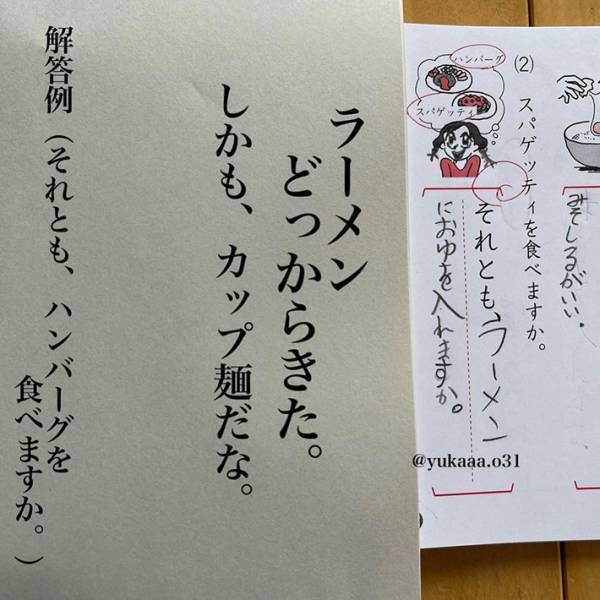 ラーメン
どっからきた。
しかも、カップ麺だな。
解答例（それとも、ハンバーグを
食べますか。）
みそしるがいい。
(2)
スパゲッティを食べますか。
ハンバーグ
スパゲッティ
それとも、ラーメン
におゆを入れますか。
@yukaaa.o31